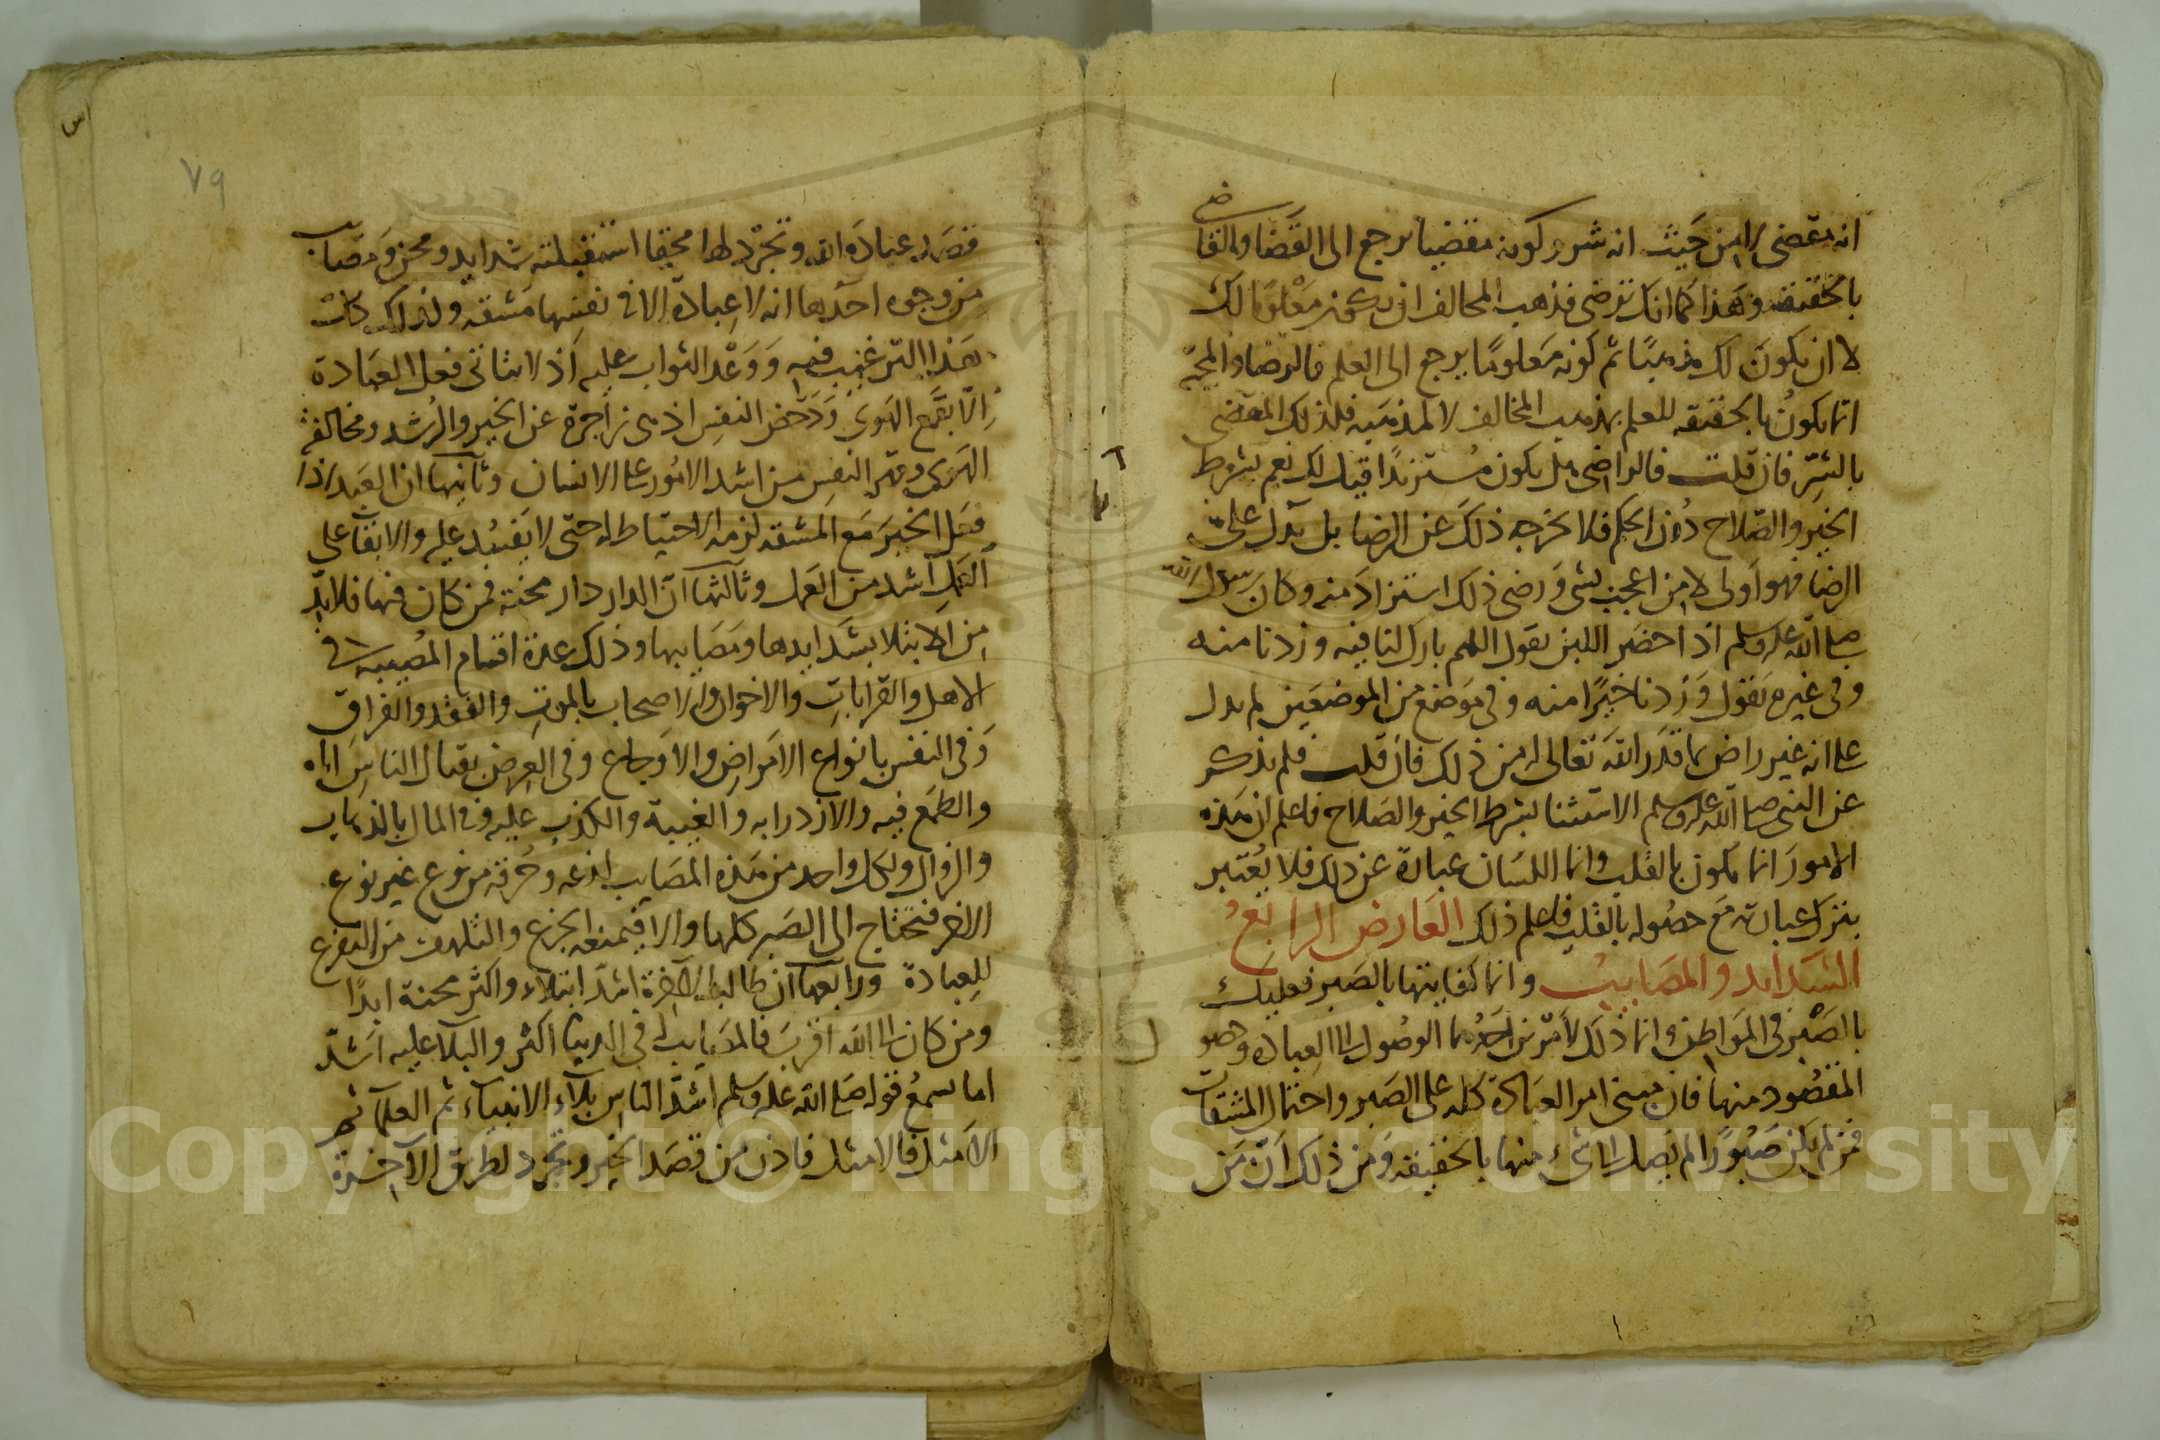 انه مقضي لا من حيث انه شر وكونه مقضيا يرجع الى القضا والقاضي
بالحقيقة وهذا كما انك ترضى مذهب المخالف ان يكون معلوما لك
لا ان يكون لك مذهبا ثم كونه معلوما يرجع الى العلم فالرضا والمحبة
انما يكون بالحقيقه للعلم بمذهب المخالف لا لمذهبه فلذلك المقضي
بالشر فان قلت فالراضي هل يكون مستزيدا قيل لك نعم بشرط
الخير والصلاح دون الحكم فلا يخرجه ذلك عن الرضا بل يدل على
الرضا فهو اولى لا من اعجب بشي ورضي ذلك استزاد منه وكان رسول الله
صلى الله عليه وسلم اذا حضر اللبن يقول اللهم بارك لنا فيه وزدنا منه
وفي غيره يقول وزدنا خيرا منه وفي موضع من الموضعين لم يدل
على انه غير راض بما قدر الله تعالى له من ذلك فان قلت فلم يذكر
عن النبي صلى الله عليه وسلم الاستثنا بشرط الخير والصلاح فاعلم ان هذه
الامور انما تكون بالقلب وانما اللسان عبارة عن ذلك فلا يعتبر
بترك عبارته مع حصوله بالقلب فاعلم ذلك العارض الرابع
الشدايد والمصايب وانما كفايتها بالصبر فعليك
بالصبر في المواطن وانما ذلك لامرين احدهما الوصول الى العباده وحصو
ل
المقصود منها فان مبنى امر العبادة كله على الصبر واحتمال المشقات
فمن لم يكن صبورا لم يصل الى شيء منها بالحقيقة ومن ذلك ان من
٧٩
قصد عبادة الله وتجرد لها محققا استقبلته شدايد ومحن ومصايب
من وجوه احدها انه لا عبادة الا في نفسها مشقه ولذلك كان
هذا الترغيب فيه ووعد الثواب عليه اذ لا يتاتى فعل العبادة
الا بقمع الهوى ودحض النفس اذ هي زاجرة عن الخير والرشد ومخالفة
الهوى وقهر النفس من اشد الامور على الانسان وثانيها ان العبد اذا
فعل الخير مع المشقه لزمه الاحتياط له حتى لا يفسد عليه والابقا على
العمل اشد من العمل وثالثها ان الدار دار محنة فمن كان فيها فلا بد له
من الابتلا بشدايدها ومصايبها وذلك عدة اقسام المصيبه في
الاهل والقرابات والاخوان والاصحاب بالموت والفقد والفراق
وفي النفس بانواع الامراض والاوجاع وفي العرض بقتال الناس اياه
والطمع فيه والازدرا به والغيبة والكذب عليه وفي المال بالذهاب
والزوال ولكل واحد من هذه المصايب لذعه وحرقه من نوع غير نوع
الاخر فتحتاج الى الصبر كلها والا فيمنعه الجزع والتلهف من التفرغ
للعبادة ورابعها ان طالب الاخرة اشد ابتلاء واكثر محنة ابدا
ومن كان الى الله اقرب فالمصايب له في الدنيا اكثر والبلا عليه اشد
اما تسمع قوله صلى الله عليه وسلم اشد الناس بلاء الانبياء ثم العلماء ثم
الامثل فالامثل فاذن من قصد الخير وتجرد لطريق الآخرة
Copyright © King Saud University